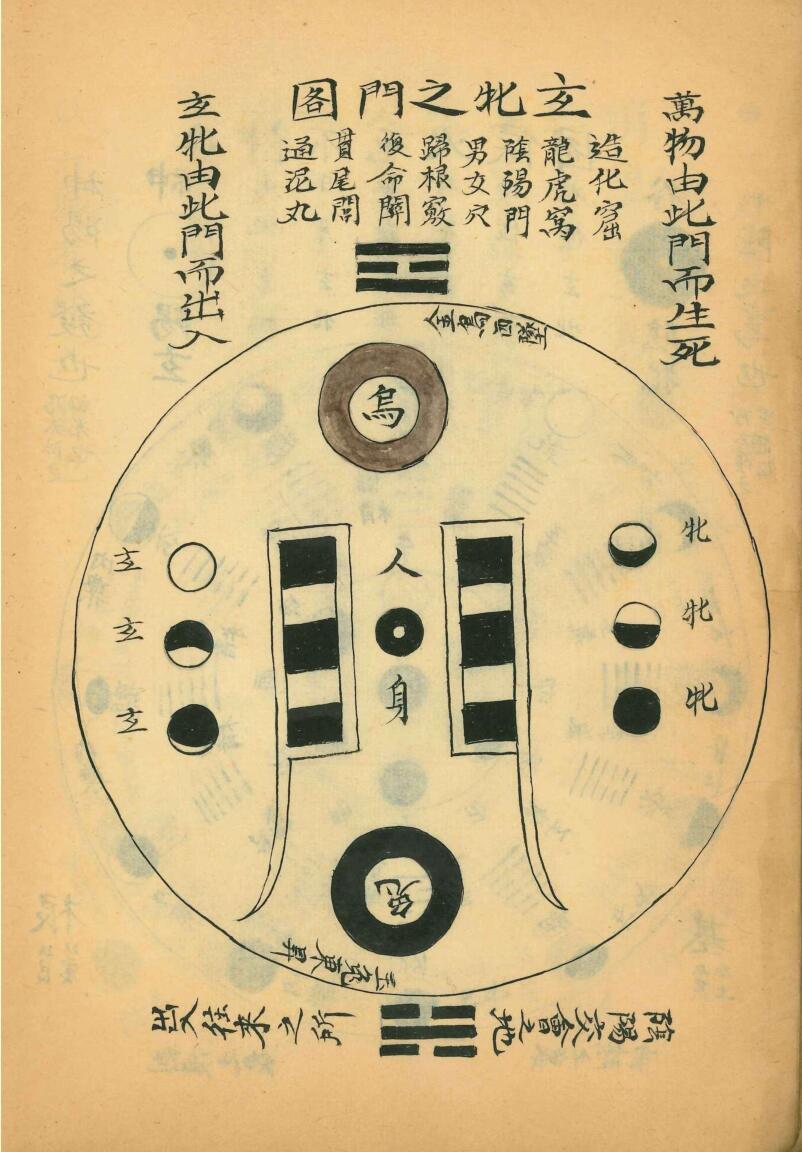 玄牝之門圖
萬物由此門而生死
造化窟
龍虎窩
陰陽門
男女穴
歸根竅
復命關
貫尾閭
通泥丸
玄牝由此門而出入
金烏西墜
烏
牝
牝
牝
人
身
玄
玄
玄
兔
玉兔東昇
陰陽交會之地
出入往來之所